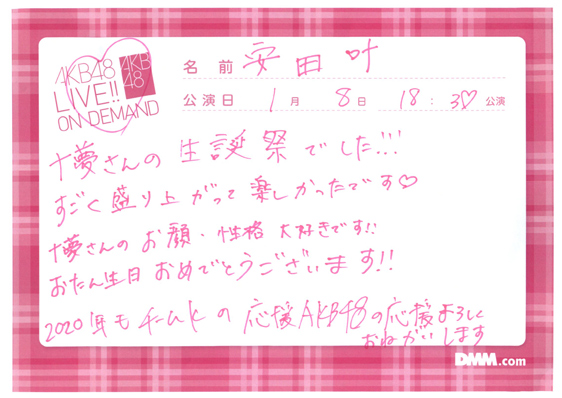 AKB48
LIVE!!
ON DEMAND
AKB
48
名前 安田 叶
公演日 1月 8日 18:30 公演
十夢さんの 生誕祭でした!!!
すごく盛り上がって 楽しかったです♡
十夢さんの お顔・性格 大好きです!!
おたん生日 おめでとうございます!!
2020年も チームKの 応援 AKB48の応援よろしく
おねがいします
DMM.com